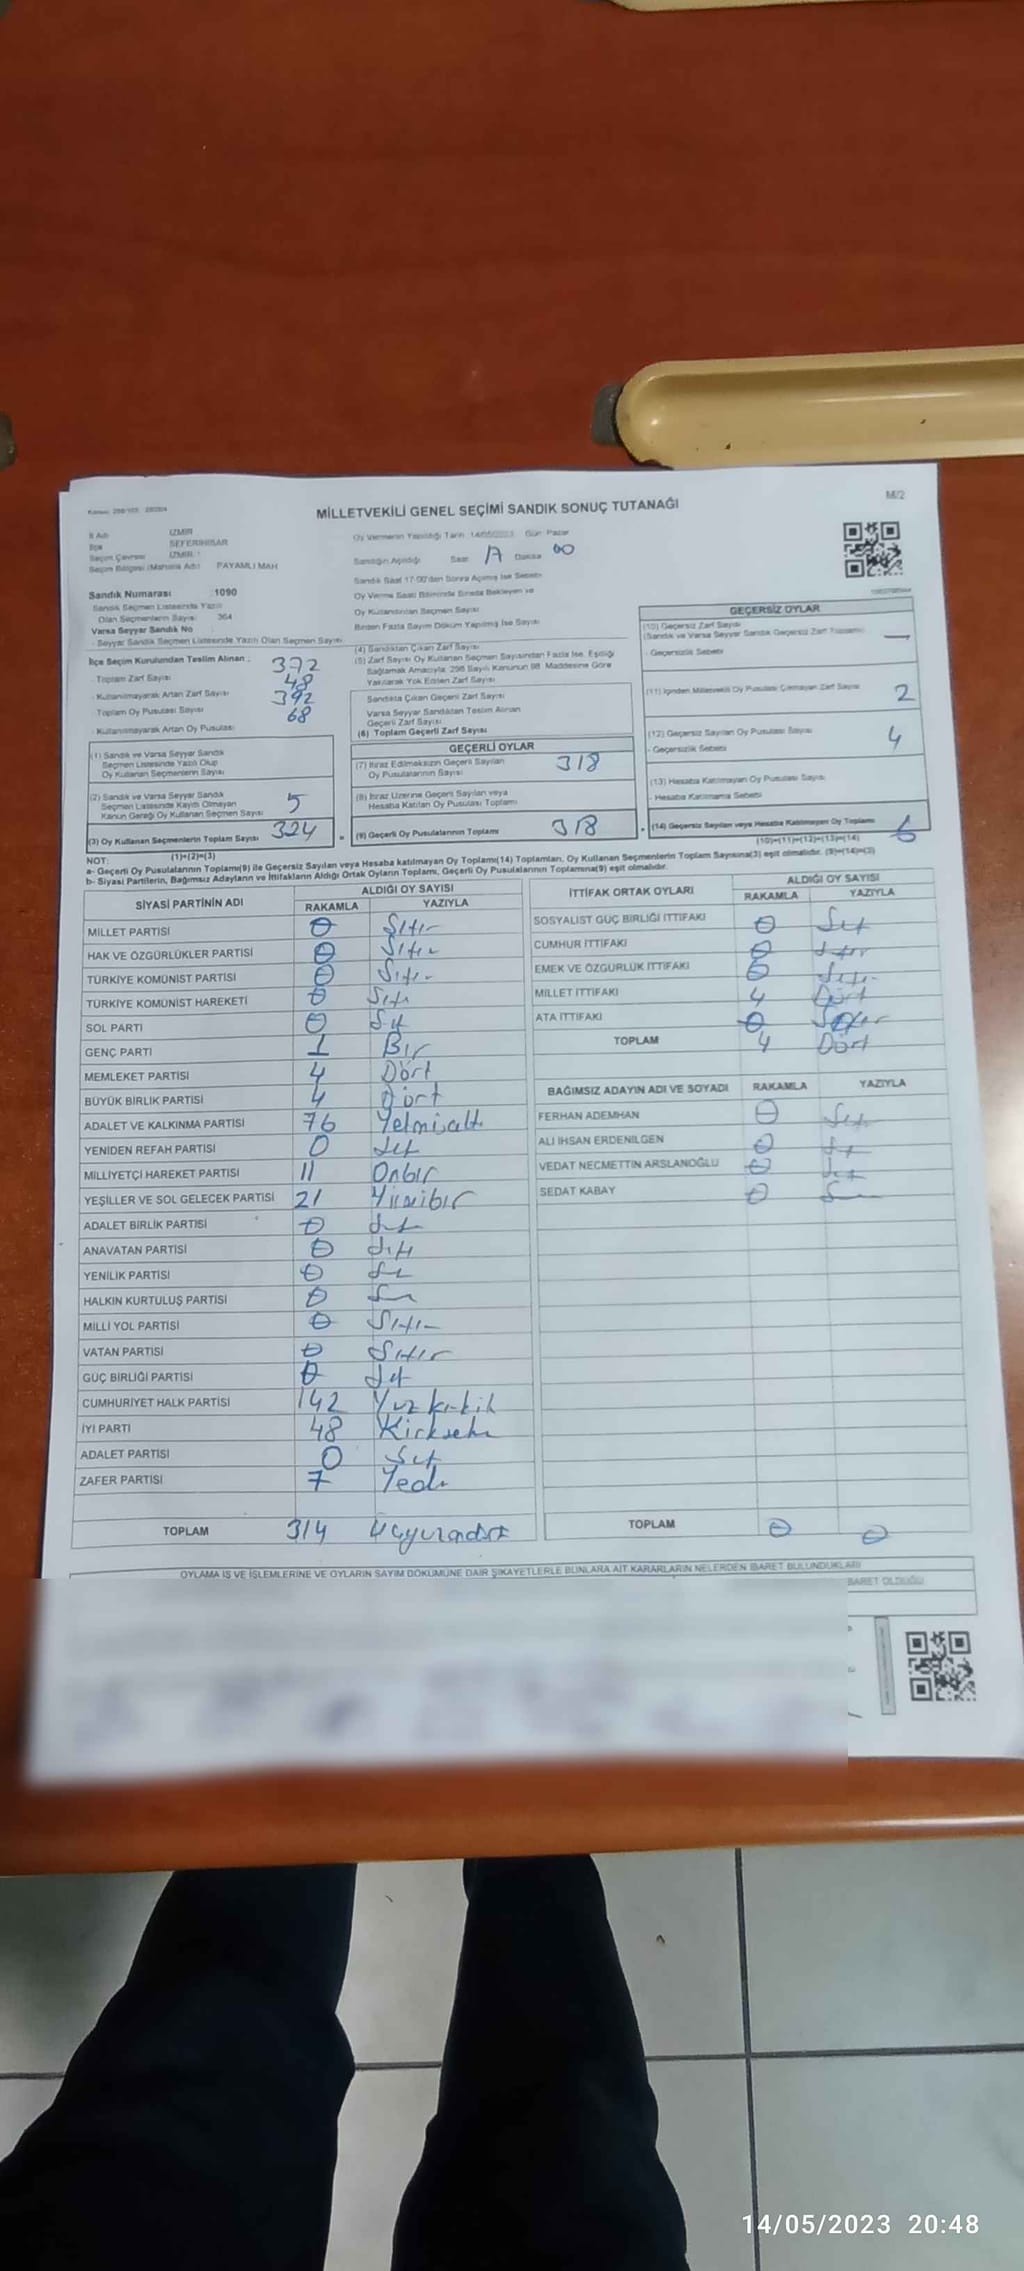 M/2
MİLLETVEKİLİ GENEL SEÇİMİ SANDIK SONUÇ TUTANAĞI
İl Adı İZMİR
İlçe SEFERİHİSAR
Seçim Çevresi İZMİR
Seçim Bölgesi (Mahalle Adı) PAYAMLI MAH
Oy Vermenin Yapıldığı Tarih 14/05/2023 Gün Pazar
Sandığın Açıldığı Saat 17 Dakika 00
Sandık Saat 17:00'den Sonra Açılmış İse Sebebi
Oy Verme Saati Bitiminde Sırada Bekleyen ve
Oy Kullandırılan Seçmen Sayısı
Birden Fazla Sayım Döküm Yapılmış İse Sayısı
Sandık Numarası :1090
Sandık Seçmen Listesinde Yazılı
Olan Seçmenlerin Sayısı 364
Varsa Seyyar Sandık No
- Seyyar Sandık Seçmen Listesinde Yazılı Olan Seçmen Sayısı
İlçe Seçim Kurulundan Teslim Alınan ;
- Toplam Zarf Sayısı 372
- Kullanılmayarak Artan Zarf Sayısı 48
- Toplam Oy Pusulası Sayısı 392
- Kullanılmayarak Artan Oy Pusulası 68
(1) Sandık ve Varsa Seyyar Sandık
Seçmen Listesinde Yazılı Olup
Oy Kullanan Seçmenlerin Sayısı
(2) Sandık ve Varsa Seyyar Sandık
Seçmen Listesinde Kayıtlı Olmayan
Kanun Gereği Oy Kullanan Seçmen Sayısı 5
(3) Oy Kullanan Seçmenlerin Toplam Sayısı 324
(1)+(2)=(3)
(4) Sandıktan Çıkan Zarf Sayısı
(5) Zarf Sayısı Oy Kullanan Seçmen Sayısından Fazla İse, Eşitliği
Sağlamak Amacıyla, 298 Sayılı Kanunun 98. Maddesine Göre
Yakılarak Yok Edilen Zarf Sayısı
Sandıkta Çıkan Geçerli Zarf Sayısı
Varsa Seyyar Sandıktan Teslim Alınan
Geçerli Zarf Sayısı
(6) Toplam Geçerli Zarf Sayısı
GEÇERLİ OYLAR
(7) İtiraz Edilmeksizin Geçerli Sayılan
Oy Pusulalarının Sayısı 318
(8) İtiraz Üzerine Geçerli Sayılan veya
Hesaba Katılan Oy Pusulası Toplamı
(9) Geçerli Oy Pusulalarının Toplamı 318
GEÇERSİZ OYLAR
(10) Geçersiz Zarf Sayısı
(Sandık ve Varsa Seyyar Sandık Geçersiz Zarf Toplamı) —
- Geçersizlik Sebebi
(11) İçinden Milletvekili Oy Pusulası Çıkmayan Zarf Sayısı 2
(12) Geçersiz Sayılan Oy Pusulası Sayısı 4
- Geçersizlik Sebebi
(13) Hesaba Katılmayan Oy Pusulası Sayısı
- Hesaba Katılmama Sebebi
(14) Geçersiz Sayılan veya Hesaba Katılmayan Oy Toplamı 6
(10)+(11)+(12)+(13)=(14)
NOT:
a- Geçerli Oy Pusulalarının Toplamı(9) ile Geçersiz Sayılan veya Hesaba katılmayan Oy Toplamı(14) Toplamları, Oy Kullanan Seçmenlerin Toplam Sayısına(3) eşit olmalıdır. (9)+(14)=(3)
b- Siyasi Partilerin, Bağımsız Adayların ve İttifakların Aldığı Ortak Oyların Toplamı, Geçerli Oy Pusulalarının Toplamına(9) eşit olmalıdır.
SİYASİ PARTİNİN ADI ALDIĞI OY SAYISI
RAKAMLA YAZIYLA
MİLLET PARTİSİ 0 Sıfır
HAK VE ÖZGÜRLÜKLER PARTİSİ 0 Sıfır
TÜRKİYE KOMÜNİST PARTİSİ 0 Sıfır
TÜRKİYE KOMÜNİST HAREKETİ 0 Sıfır
SOL PARTİ 0 Sıfır
GENÇ PARTİ 1 Bir
MEMLEKET PARTİSİ 4 Dört
BÜYÜK BİRLİK PARTİSİ 4 Dört
ADALET VE KALKINMA PARTİSİ 76 Yetmişaltı
YENİDEN REFAH PARTİSİ 0 Sıfır
MİLLİYETÇİ HAREKET PARTİSİ 11 Onbir
YEŞİLLER VE SOL GELECEK PARTİSİ 21 Yirmibir
ADALET BİRLİK PARTİSİ 0 Sıfır
ANAVATAN PARTİSİ 0 Sıfır
YENİLİK PARTİSİ 0
HALKIN KURTULUŞ PARTİSİ 0
MİLLİ YOL PARTİSİ 0 Sıfır
VATAN PARTİSİ 0 Sıfır
GÜÇ BİRLİĞİ PARTİSİ 0 Sıfır
CUMHURİYET HALK PARTİSİ 142 Yüzkırkiki
İYİ PARTİ 48 Kırksekiz
ADALET PARTİSİ 0 Sıfır
ZAFER PARTİSİ 7 Yedi
TOPLAM 314 Üçyüzondört
İTTİFAK ORTAK OYLARI ALDIĞI OY SAYISI
RAKAMLA YAZIYLA
SOSYALİST GÜÇ BİRLİĞİ İTTİFAKI 0 Sıfır
CUMHUR İTTİFAKI 0 Sıfır
EMEK VE ÖZGÜRLÜK İTTİFAKI 0 Sıfır
MİLLET İTTİFAKI 4 Dört
ATA İTTİFAKI 0 Sıfır
TOPLAM 4 Dört
BAĞIMSIZ ADAYIN ADI VE SOYADI RAKAMLA YAZIYLA
FERHAN ADEMHAN 0 Sıfır
ALİ İHSAN ERDENİLGEN 0 Sıfır
VEDAT NECMETTİN ARSLANOĞLU 0 Sıfır
SEDAT KABAY 0
TOPLAM 0 0
OYLAMA İŞ VE İŞLEMLERİNE VE OYLARIN SAYIM DÖKÜMÜNE DAİR ŞİKAYETLERLE BUNLARA AİT KARARLARIN NELERDEN İBARET BULUNDUKLARI
BARET OLDUĞU
14/05/2023 20:48